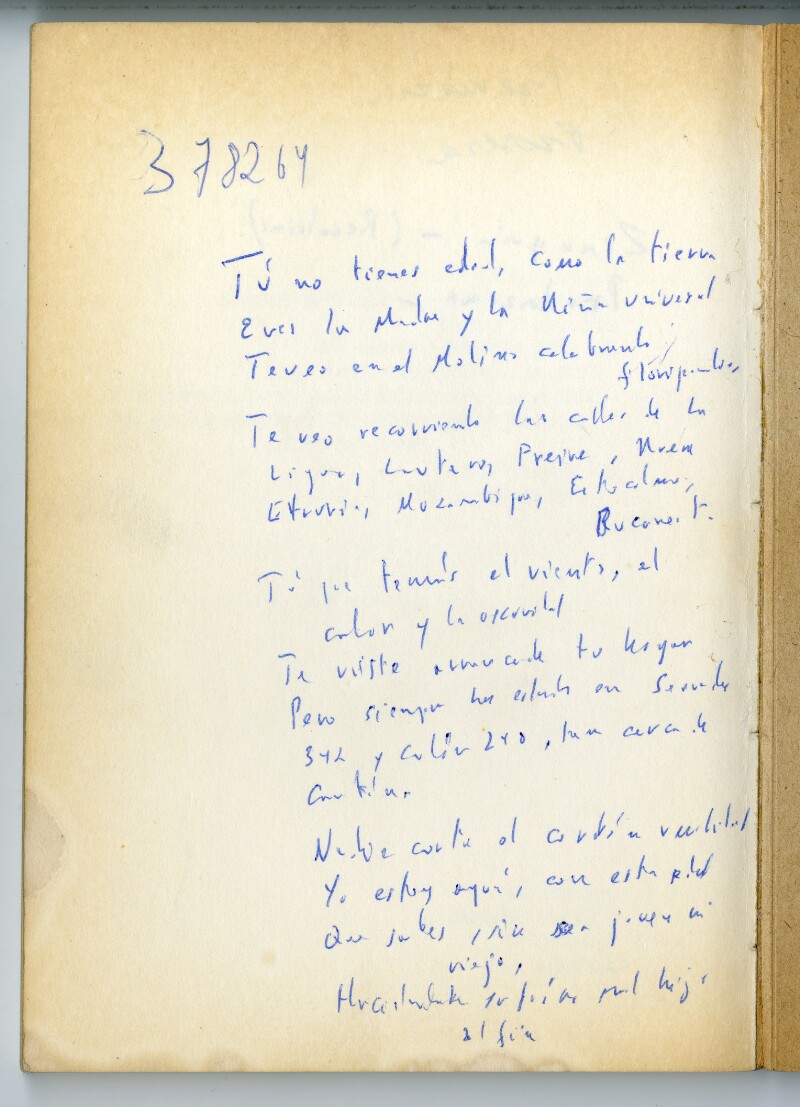 378264
Tú no tienes edad, como la tierra
Eres la Madre y la Niña universal
Te veo en el Molino celebrando
Te veo recorriendo las calles de La
Ligua, Lautaro, Freire, Nueva
Etruria, Mozambique, Estocolmo,
Bucarest.
Tú que temías el viento, el
calor y la oscuridad
Te viste arrancada de tu hogar
Pero siempre has estado en Serrano
342 y Colón 240, tan cerca de
Cautín.
Nadie corta el cordón umbilical
Yo estoy aquí, con esta edad
Que sabes, sin ser joven ni
viejo,
hijo
al fin